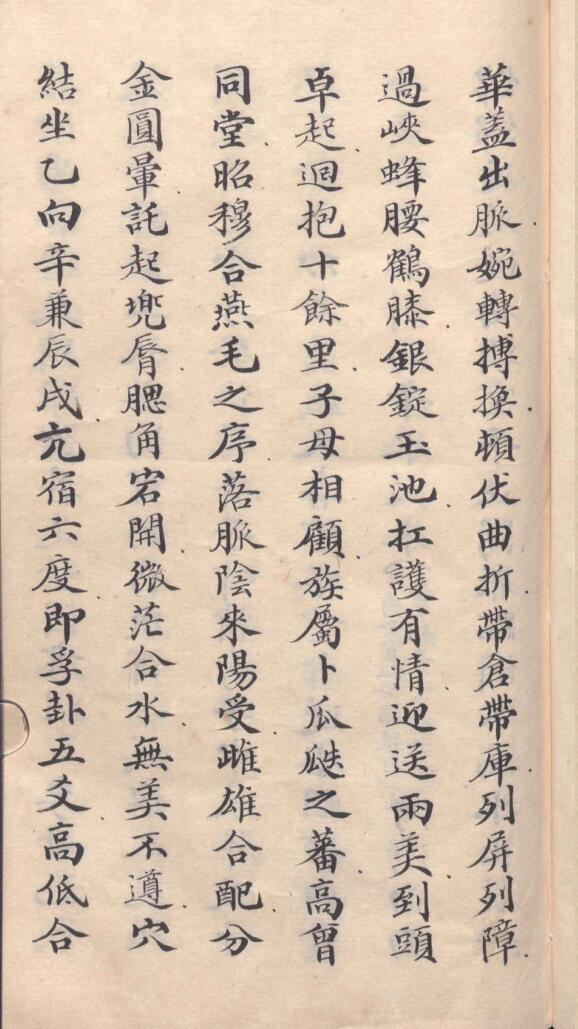 華蓋出脈婉轉摶換頓伏曲折帶倉帶庫列屏列障
過峽蜂腰鶴膝銀錠玉池扛護有情迎送兩美到頭
卓起迴抱十餘里子母相顧族屬卜瓜瓞之蕃高曾
同堂昭穆合燕毛之序落脈陰來陽受雌雄合配分
金圓暈託起兜唇腮角宕開微茫合水無美不遵穴
結坐乙向辛兼辰戌亢宿六度即孚卦五爻高低合